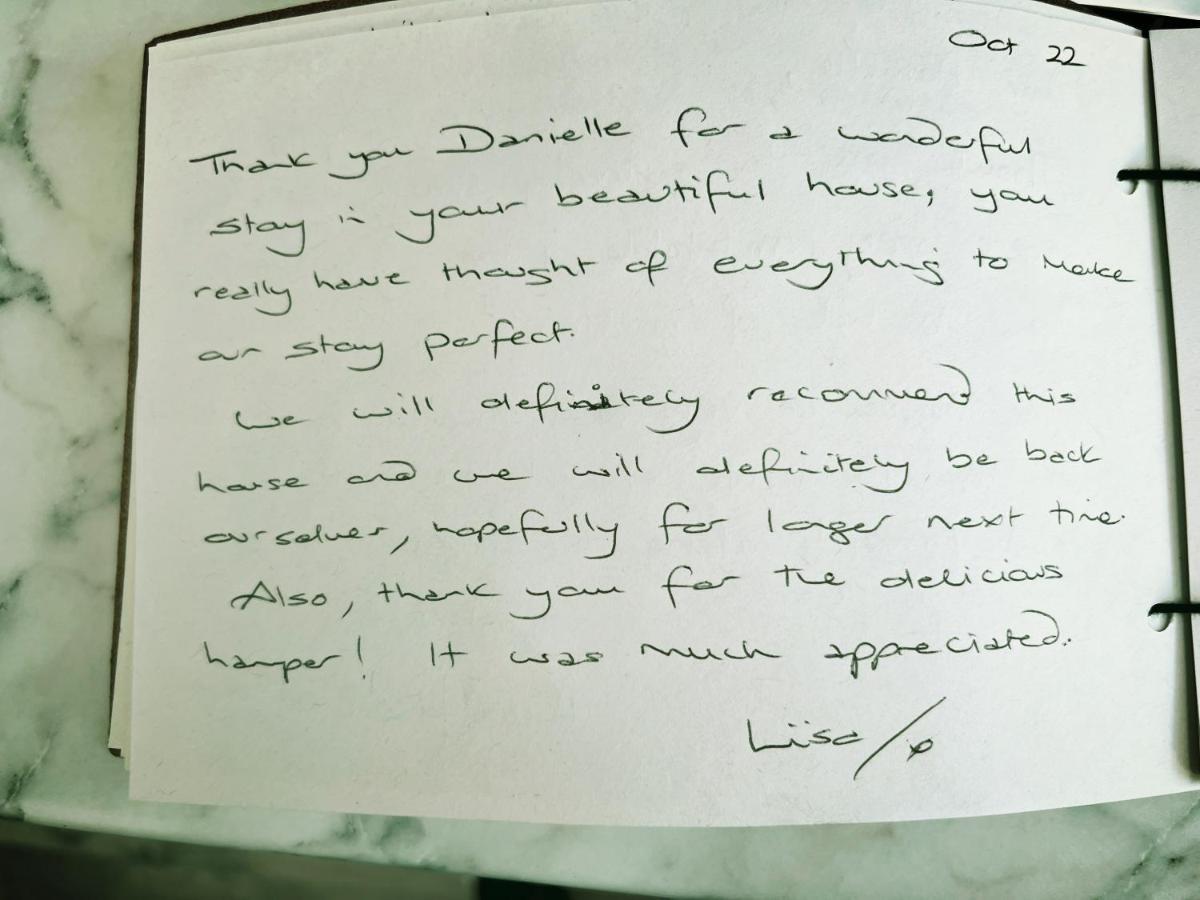 Oct 22
Thank you Danielle for a wonderful
stay in your beautiful house, you
really have thought of everything to make
our stay perfect.
We will definitely recommend this
house and we will definitely be back
ourselves, hopefully for longer next time.
Also, thank you for the delicious
hamper! It was much appreciated.
Liisa/x